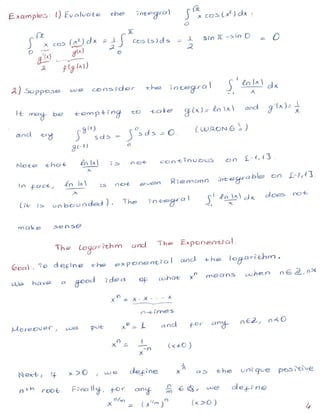 Examples: 1) Evaluate the integral ∫_0^√π x cos(x²) dx.
∫_0^√π x cos(x²) dx = 1/2 ∫_0^π cos(s) ds = 1/2 sin π - sin 0 = 0
g'(x)/2 f(g(x)) g(x)
2) Suppose we consider the integral ∫_{-1}^1 ln|x|/x dx
It may be tempting to take g(x) = ln|x| and g'(x) = 1/x
and try ∫_{g(-1)}^{g(1)} s ds = ∫_0^0 s ds = 0. (WRONG!)
Note that ln|x|/x is not continuous on [-1,1].
In fact, ln|x|/x is not even Riemann integrable on [-1,1]
(it is unbounded). The integral ∫_{-1}^1 ln|x|/x dx does not
make sense
The Logarithm and The Exponential.
Goal: To define the exponential and the logarithm.
We have a good idea of what xⁿ means when n∈ℤ, n>0
xⁿ = x · x · · · x
n-times
Moreover, we put x⁰ = 1 and for any n∈ℤ, n<0
xⁿ = 1/x⁻ⁿ (x≠0)
Next, if x>0, we define x^{1/n} as the unique positive
nth root. Finally, for any n/m ∈ ℚ, we define
x^{n/m} = (x^{1/m})ⁿ (x>0)